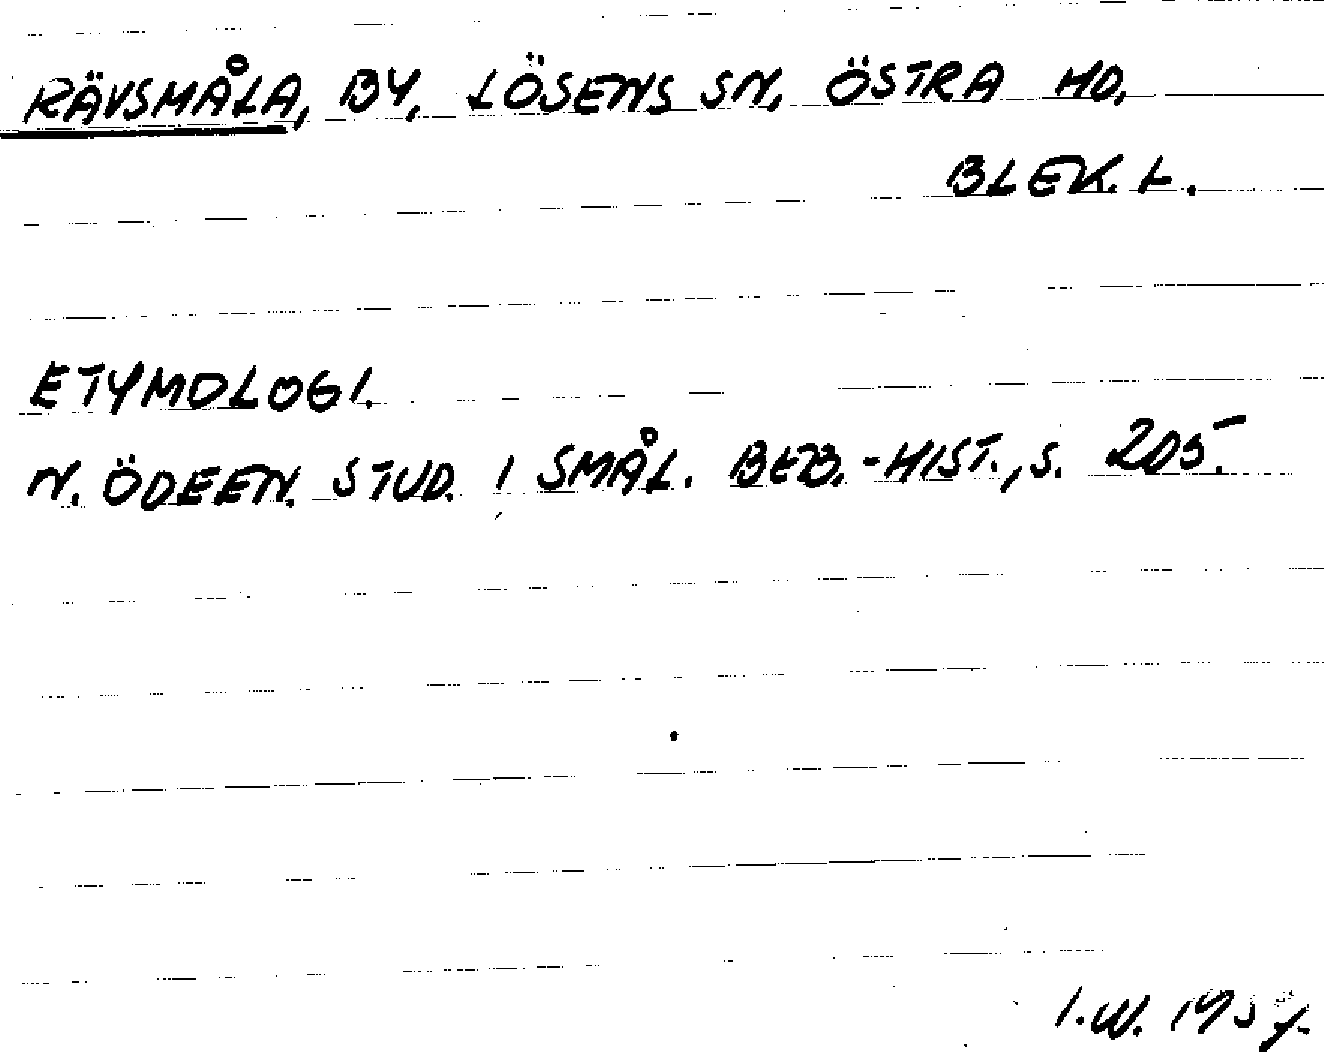 RÄVSMÅLA, BY, LÖSENS SN, ÖSTRA HD,
BLEK. L.
ETYMOLOGI.
N. ÖDEEN. STUD. I SMÅL. BEB.-HIST., S. 205.
I.W.